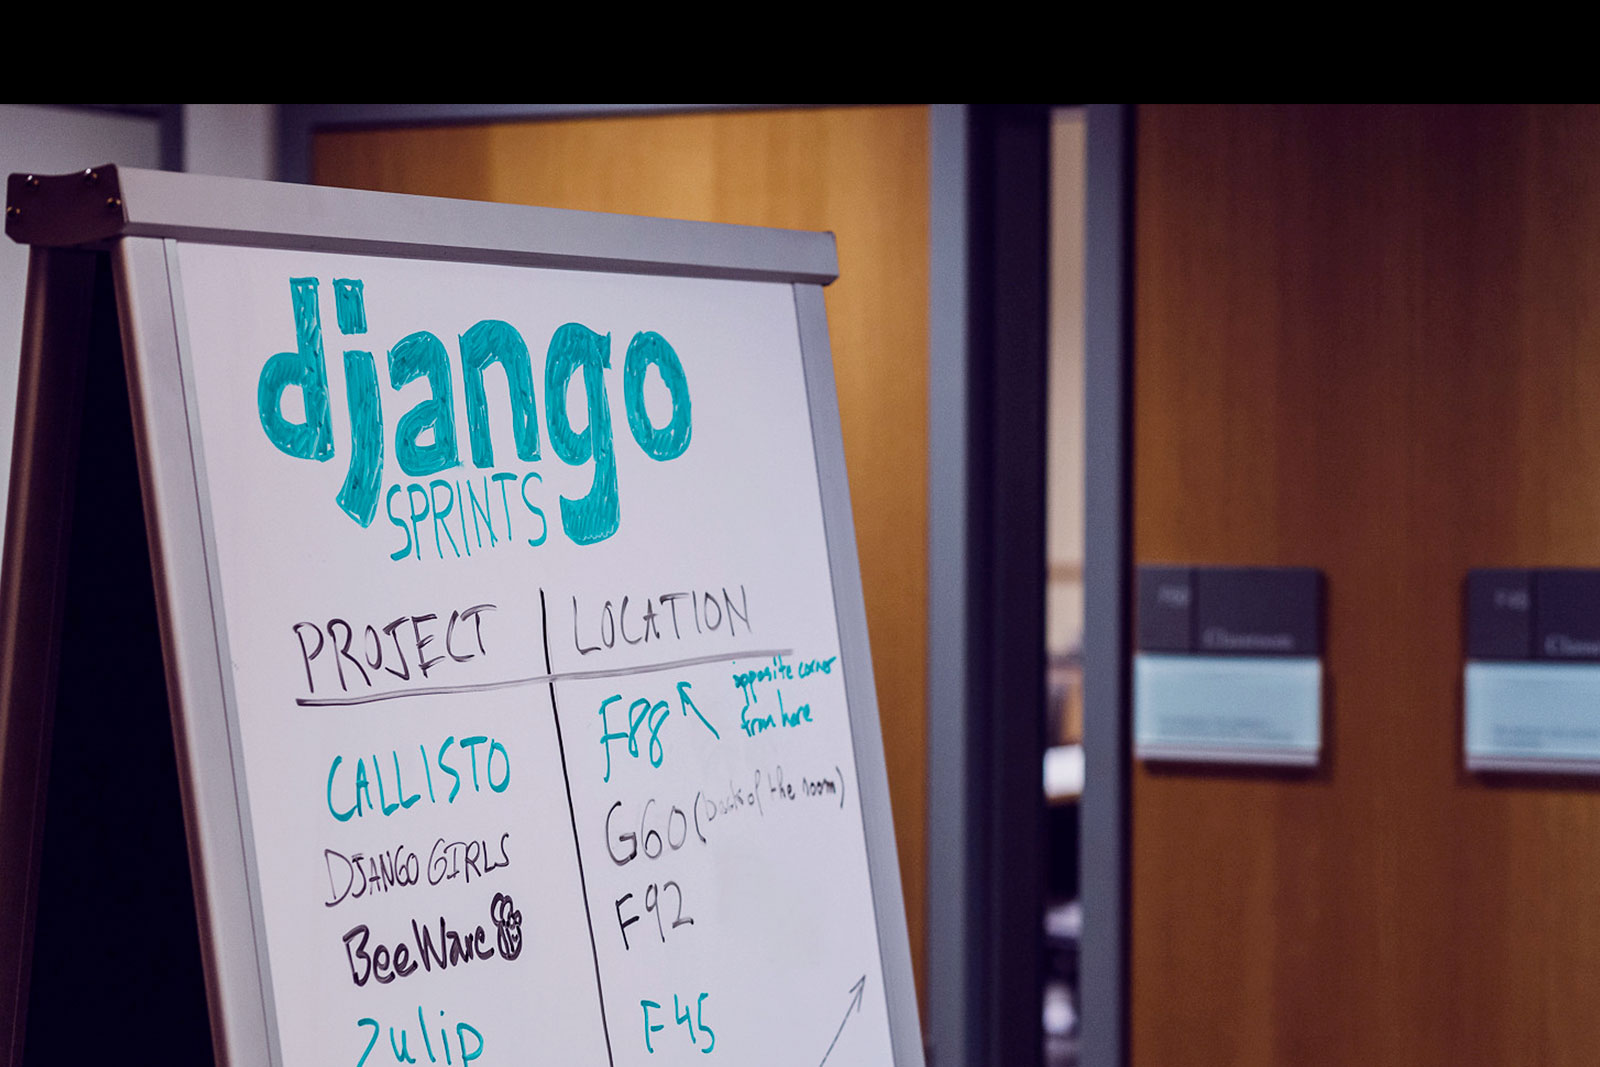 django
SPRINTS
PROJECT | LOCATION
CALLISTO F88 opposite corner
from here
DJANGO GIRLS G60 (back of the room)
BeeWare F92
Zulip F45